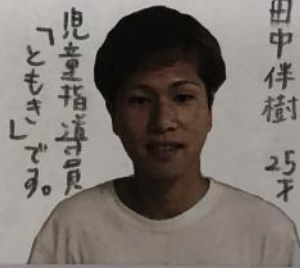 田中伴樹 25才
児童指導員
「ともき」です。